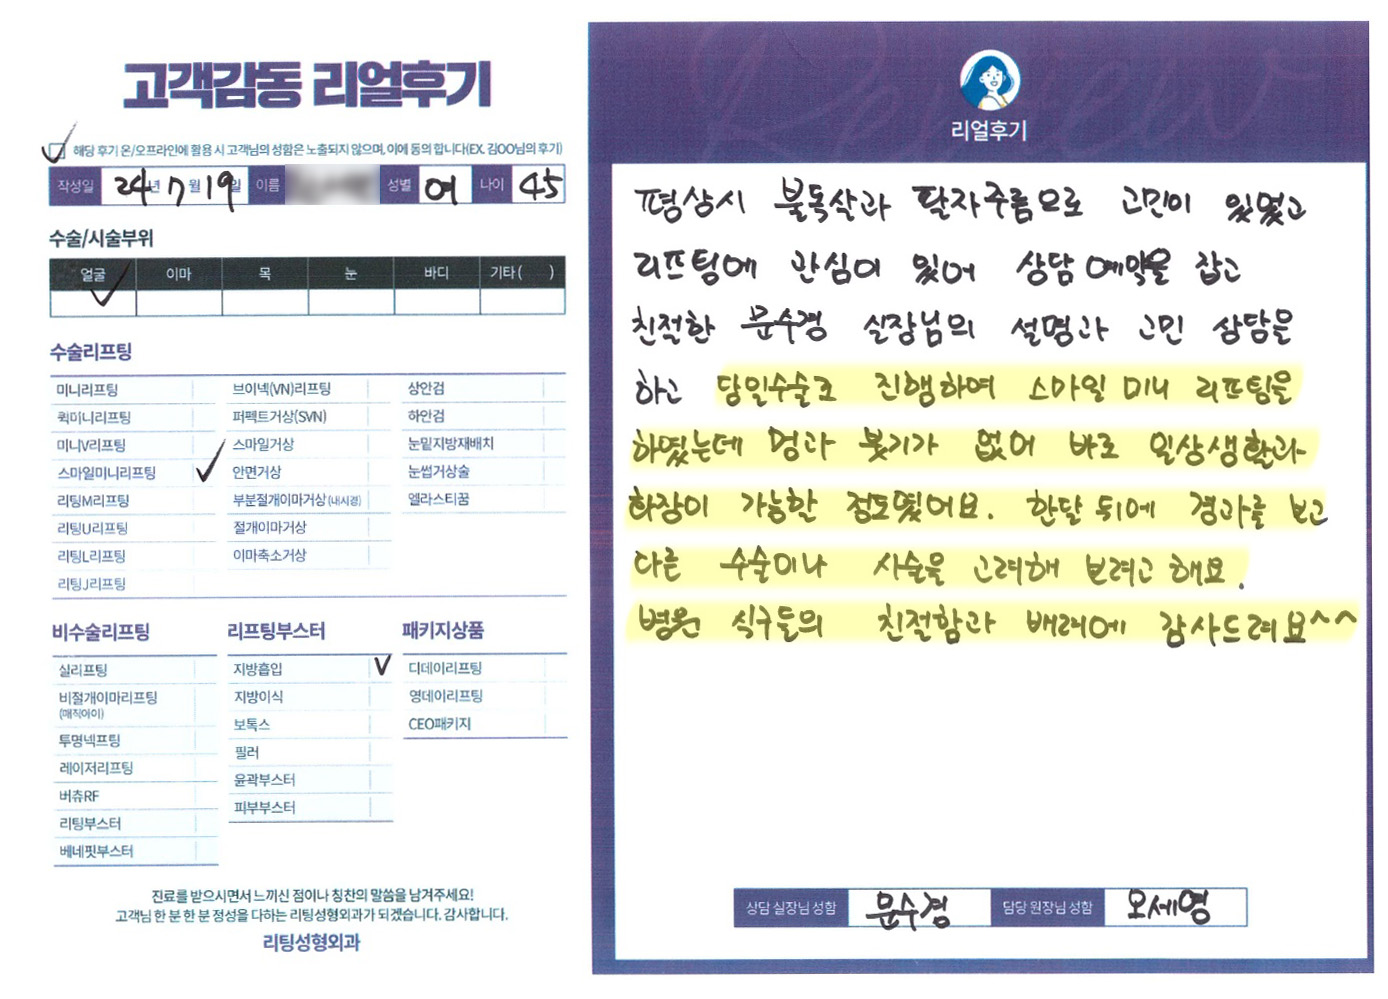 고객감동 리얼후기
해당 후기 온/오프라인에 활용 시 고객님의 성함은 노출되지 않으며, 이에 동의 합니다(EX. 김OO님의 후기)
작성일 24년 7월 19일 이름 성별 여 나이 45
수술/시술부위
얼굴 이마 목 눈 바디 기타 ( )
수술리프팅
미니리프팅 브이넥(VN)리프팅 상안검
퀵미니리프팅 퍼펙트거상(SVN) 하안검
미니V리프팅 스마일거상 눈밑지방재배치
스마일미니리프팅 안면거상 눈썹거상술
리팅M리프팅 부분절개이마거상(내시경) 엘라스티꿈
리팅U리프팅 절개이마거상
리팅L리프팅 이마축소거상
리팅J리프팅
비수술리프팅 리프팅부스터 패키지상품
실리프팅 지방흡입 디데이리프팅
비절개이마리프팅 지방이식 영데이리프팅
(매직아이) 보톡스 CEO패키지
투명넥프팅 필러
레이저리프팅 윤곽부스터
버츄RF 피부부스터
리팅부스터
베네핏부스터
진료를 받으시면서 느끼신 점이나 칭찬의 말씀을 남겨주세요!
고객님 한 분 한 분 정성을 다하는 리팅성형외과가 되겠습니다. 감사합니다.
리팅성형외과
Review
리얼후기
평상시 불독살과 팔자주름으로 고민이 있었고
리프팅에 관심이 있어 상담 예약을 잡고
친절한 문수경 실장님의 설명과 고민 상담을
하고 당일수술로 진행하여 스마일 미니 리프팅을
하였는데 멍과 붓기가 없어 바로 일상생활과
화장이 가능할 정도였어요. 한달 뒤에 경과를 보고
다른 수술이나 시술을 고려해 보려고 해요.
병원 식구들의 친절함과 배려에 감사드려요^^
상담 실장님 성함 문수경 담당 원장님 성함 오세영